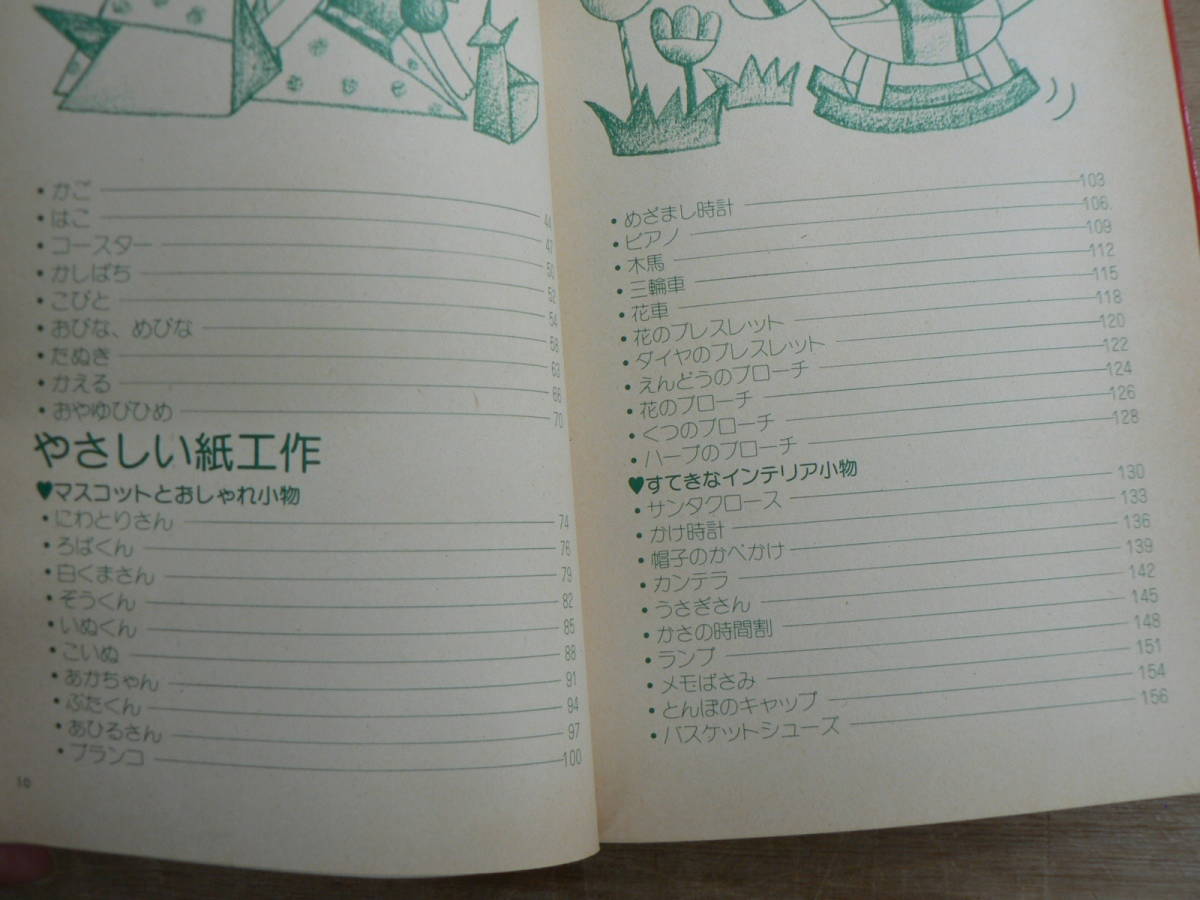 ・かご 44
・はこ 47
・コースター 50
・かしばち 52
・こびと 54
・おびな、めびな 58
・たぬき 63
・かえる 66
・おやゆびひめ 70
やさしい紙工作
♥マスコットとおしゃれ小物
・にわとりさん 74
・ろばくん 76
・白くまさん 79
・ぞうくん 82
・いぬくん 85
・こいぬ 88
・あかちゃん 91
・ぶたくん 94
・あひるさん 97
・ブランコ 100
10
・めざまし時計 103
・ピアノ 106
・木馬 109
・三輪車 112
・花車 115
・花のブレスレット 118
・ダイヤのブレスレット 120
・えんどうのブローチ 122
・花のブローチ 124
・くつのブローチ 126
・ハープのブローチ 128
♥すてきなインテリア小物
・サンタクロース 130
・かけ時計 133
・帽子のかべかけ 136
・カンテラ 139
・うさぎさん 142
・かさの時間割 145
・ランプ 148
・メモばさみ 151
・とんぼのキャップ 154
・バスケットシューズ 156